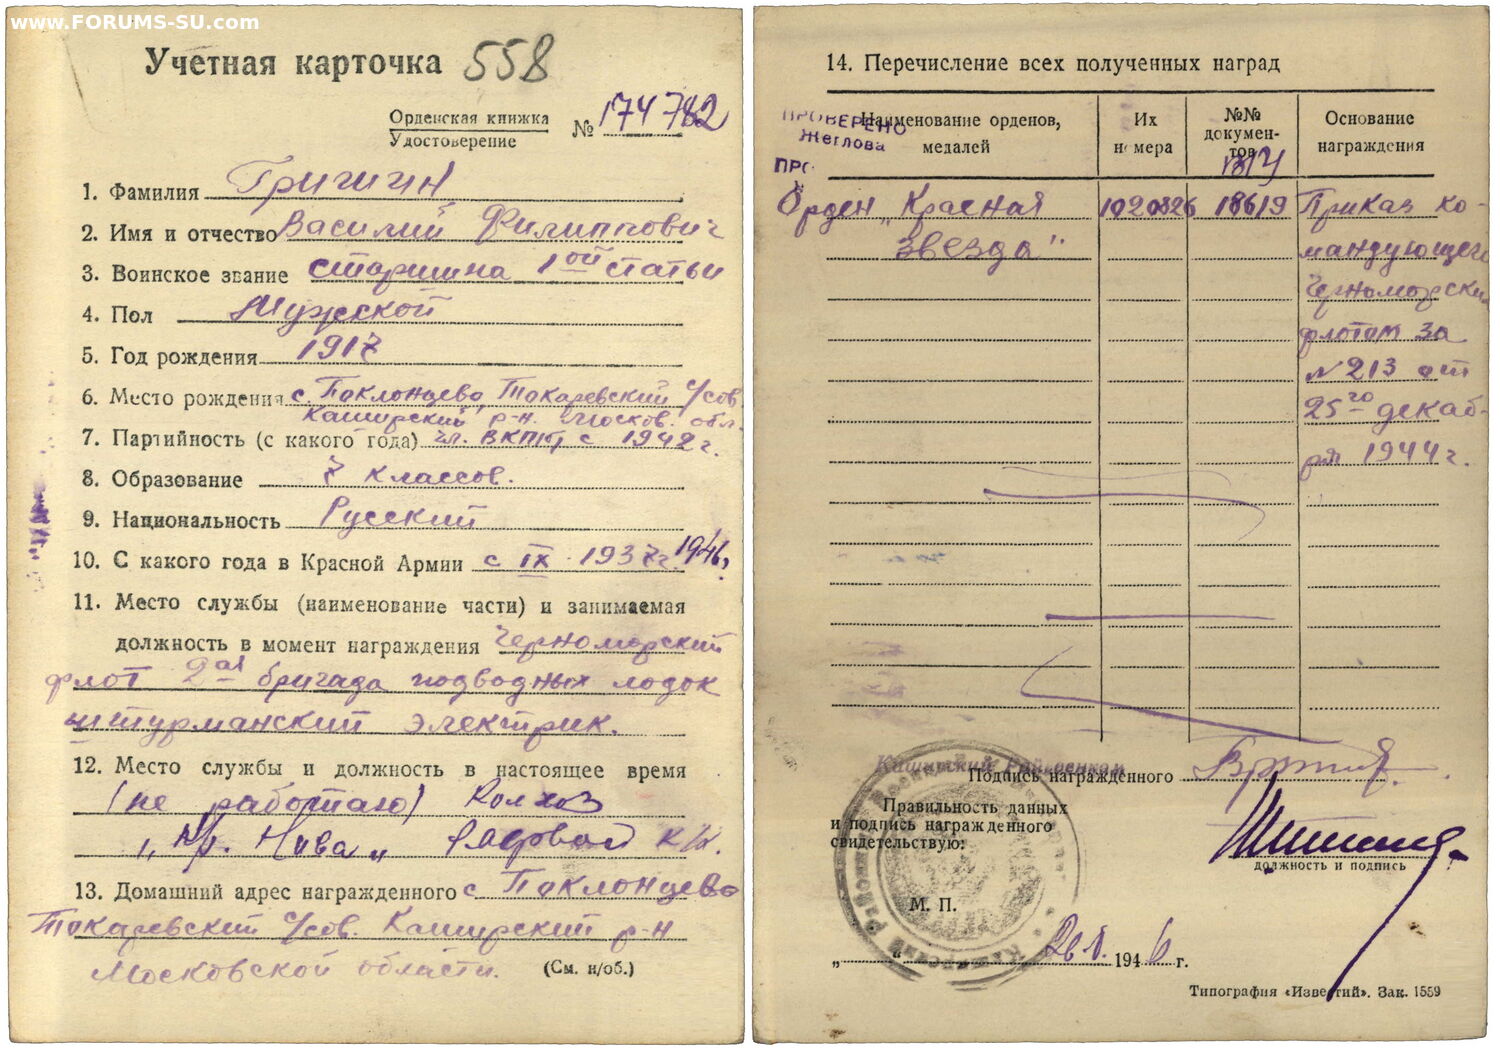 www.FORUMS-SU.com
Учетная карточка 558
Орденская книжка
Удостоверение
№ 174782
1. Фамилия Гришин
2. Имя и отчество Василий Филиппович
3. Воинское звание старшина 1ой статьи
4. Пол Мужской
5. Год рождения 1917
6. Место рождения с. Паклонцево, Токаревский с/сов
Каширский р-н. Москов. обл.
7. Партийность (с какого года) чл. ВКП(б) с 1942 г.
8. Образование 7 классов.
9. Национальность Русский
10. С какого года в Красной Армии с IX 1937г. 1946
11. Место службы (наименование части) и занимаемая
должность в момент награждения Черноморский
флот 2ая бригада подводных лодок
штурманский электрик.
12. Место службы и должность в настоящее время
(не работаю) Колхоз
„Кр. Нива„ рядовой к/к.
13. Домашний адрес награжденного с Паклонцево
Токаревский с/сов. Каширский р-н
Московской области. (См. н/об.)
14. Перечисление всех полученных наград
ПРОВЕРЕНО
Жеглова
Наименование орденов,
медалей
Их
номера
№№
докумен-
тов
Основание
награждения
Орден „Красная 1020826 18619 Приказ ко-
звезда" мандующего
Черноморским
флотом за
№ 213 от
25го декаб-
ря 1944 г.
Подпись награжденного
Правильность данных
и подпись награжденного
свидетельствую:
должность и подпись
М. П.
1946 г.
Типография «Известий». Зак. 1559